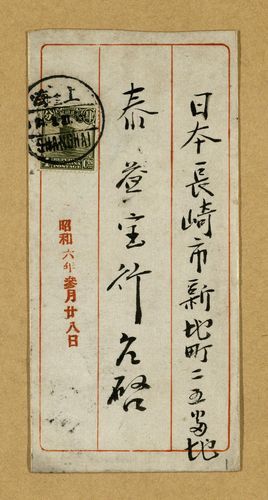 日本長崎市新地町二五番地
泰益宝行台啓
上海
SHANGHAI
昭和六年参月廿八日